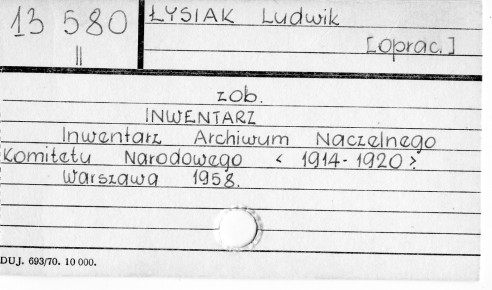 13 580
II
ŁYSIAK Ludwik
[oprac.]
zob.
INWENTARZ
Inwentarz Archiwum Naczelnego
Komitetu Narodowego < 1914-1920 >.
Warszawa 1958.
DUJ. 693/70. 10 000.